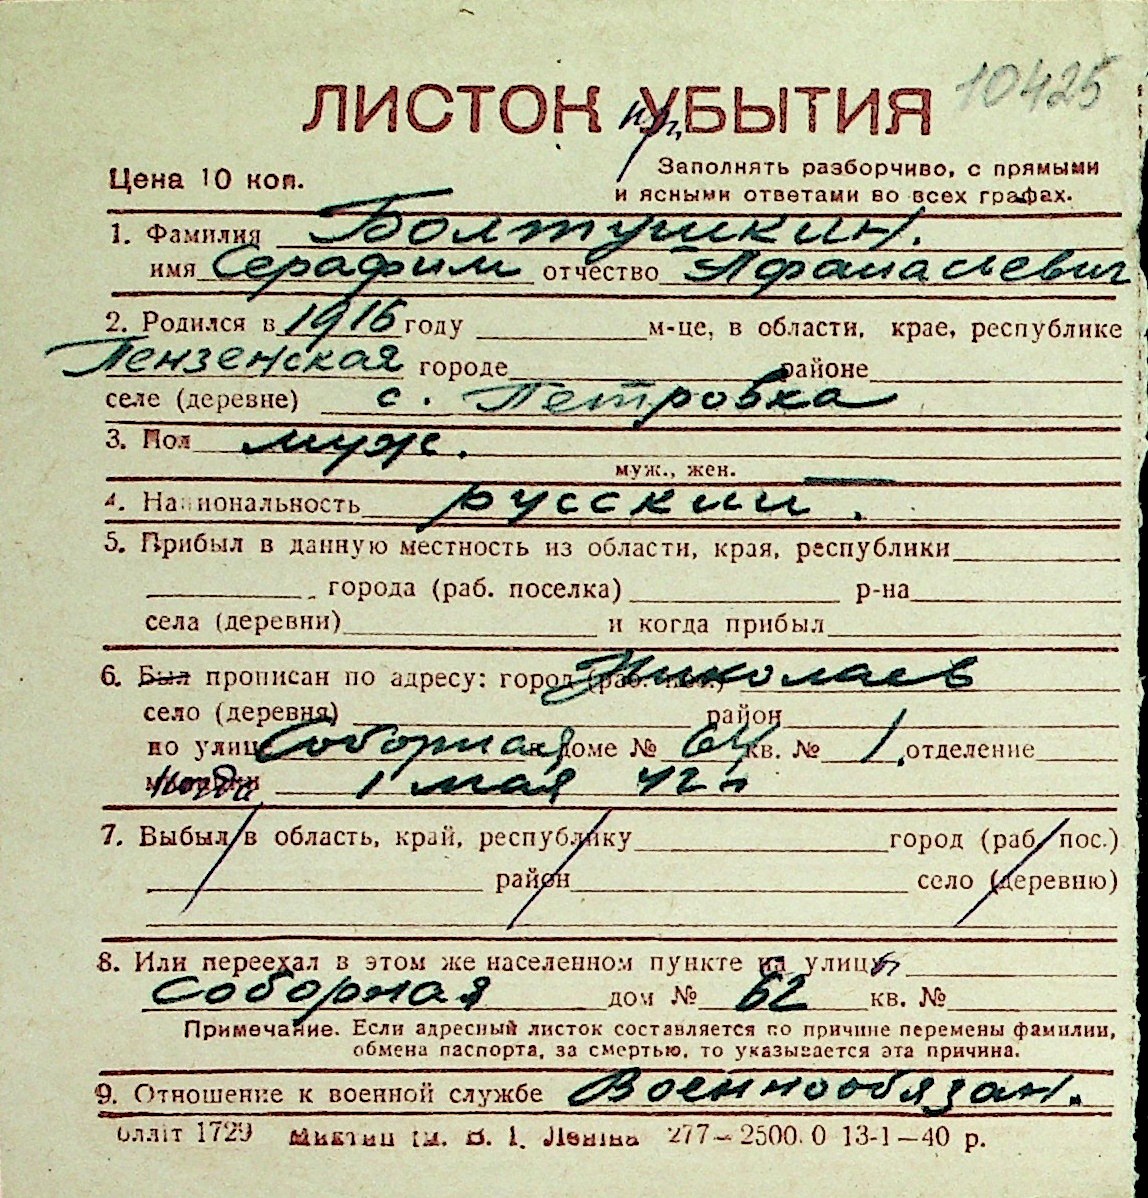 10425
ЛИСТОК УБЫТИЯ
Цена 10 коп.
Заполнять разборчиво, с прямыми
и ясными ответами во всех графах.
1. Фамилия Болтушкин.
имя Серафим отчество Афанасьевич
2. Родился в 1916 году м-це, в области, крае, республике
Пензенская городе районе
селе (деревне) с. Петровка
3. Пол муж.
муж., жен.
4. Национальность русский.
5. Прибыл в данную местность из области, края, республики
города (раб. поселка) р-на
села (деревни) и когда прибыл
6. Был прописан по адресу: город (раб. пос.) Николаев
село (деревня) район
по улице Соборная в доме № 64 кв. № 1, отделение
когда 1 мая 42 г
7. Выбыл в область, край, республику город (раб. пос.)
район село (деревню)
8. Или переехал в этом же населенном пункте на улицу
Соборная дом № 62 кв. №
Примечание. Если адресный листок составляется по причине перемены фамилии,
обмена паспорта, за смертью, то указывается эта причина.
9. Отношение к военной службе Военнообязан.
1729 В. І. Леніна 277–2500. 0 13-1–40 р.